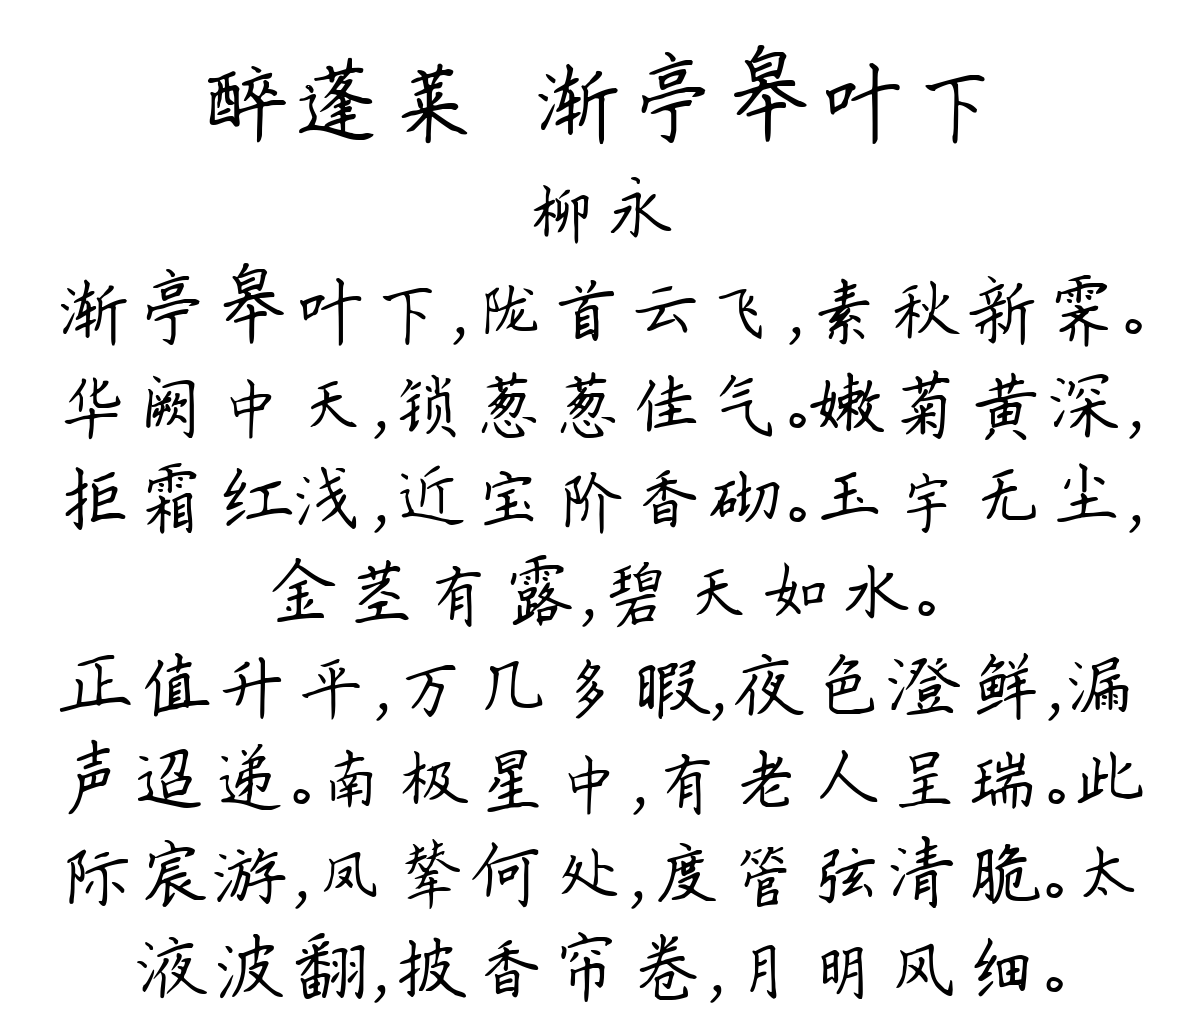 醉蓬莱 渐亭皋叶下
柳永
渐亭皋叶下,陇首云飞,素秋新霁。
华阙中天,锁葱葱佳气。嫩菊黄深,
拒霜红浅,近宝阶香砌。玉宇无尘,
金茎有露,碧天如水。
正值升平,万几多暇,夜色澄鲜,漏
声迢递。南极星中,有老人呈瑞。此
际宸游,凤辇何处,度管弦清脆。太
液波翻,披香帘卷,月明风细。